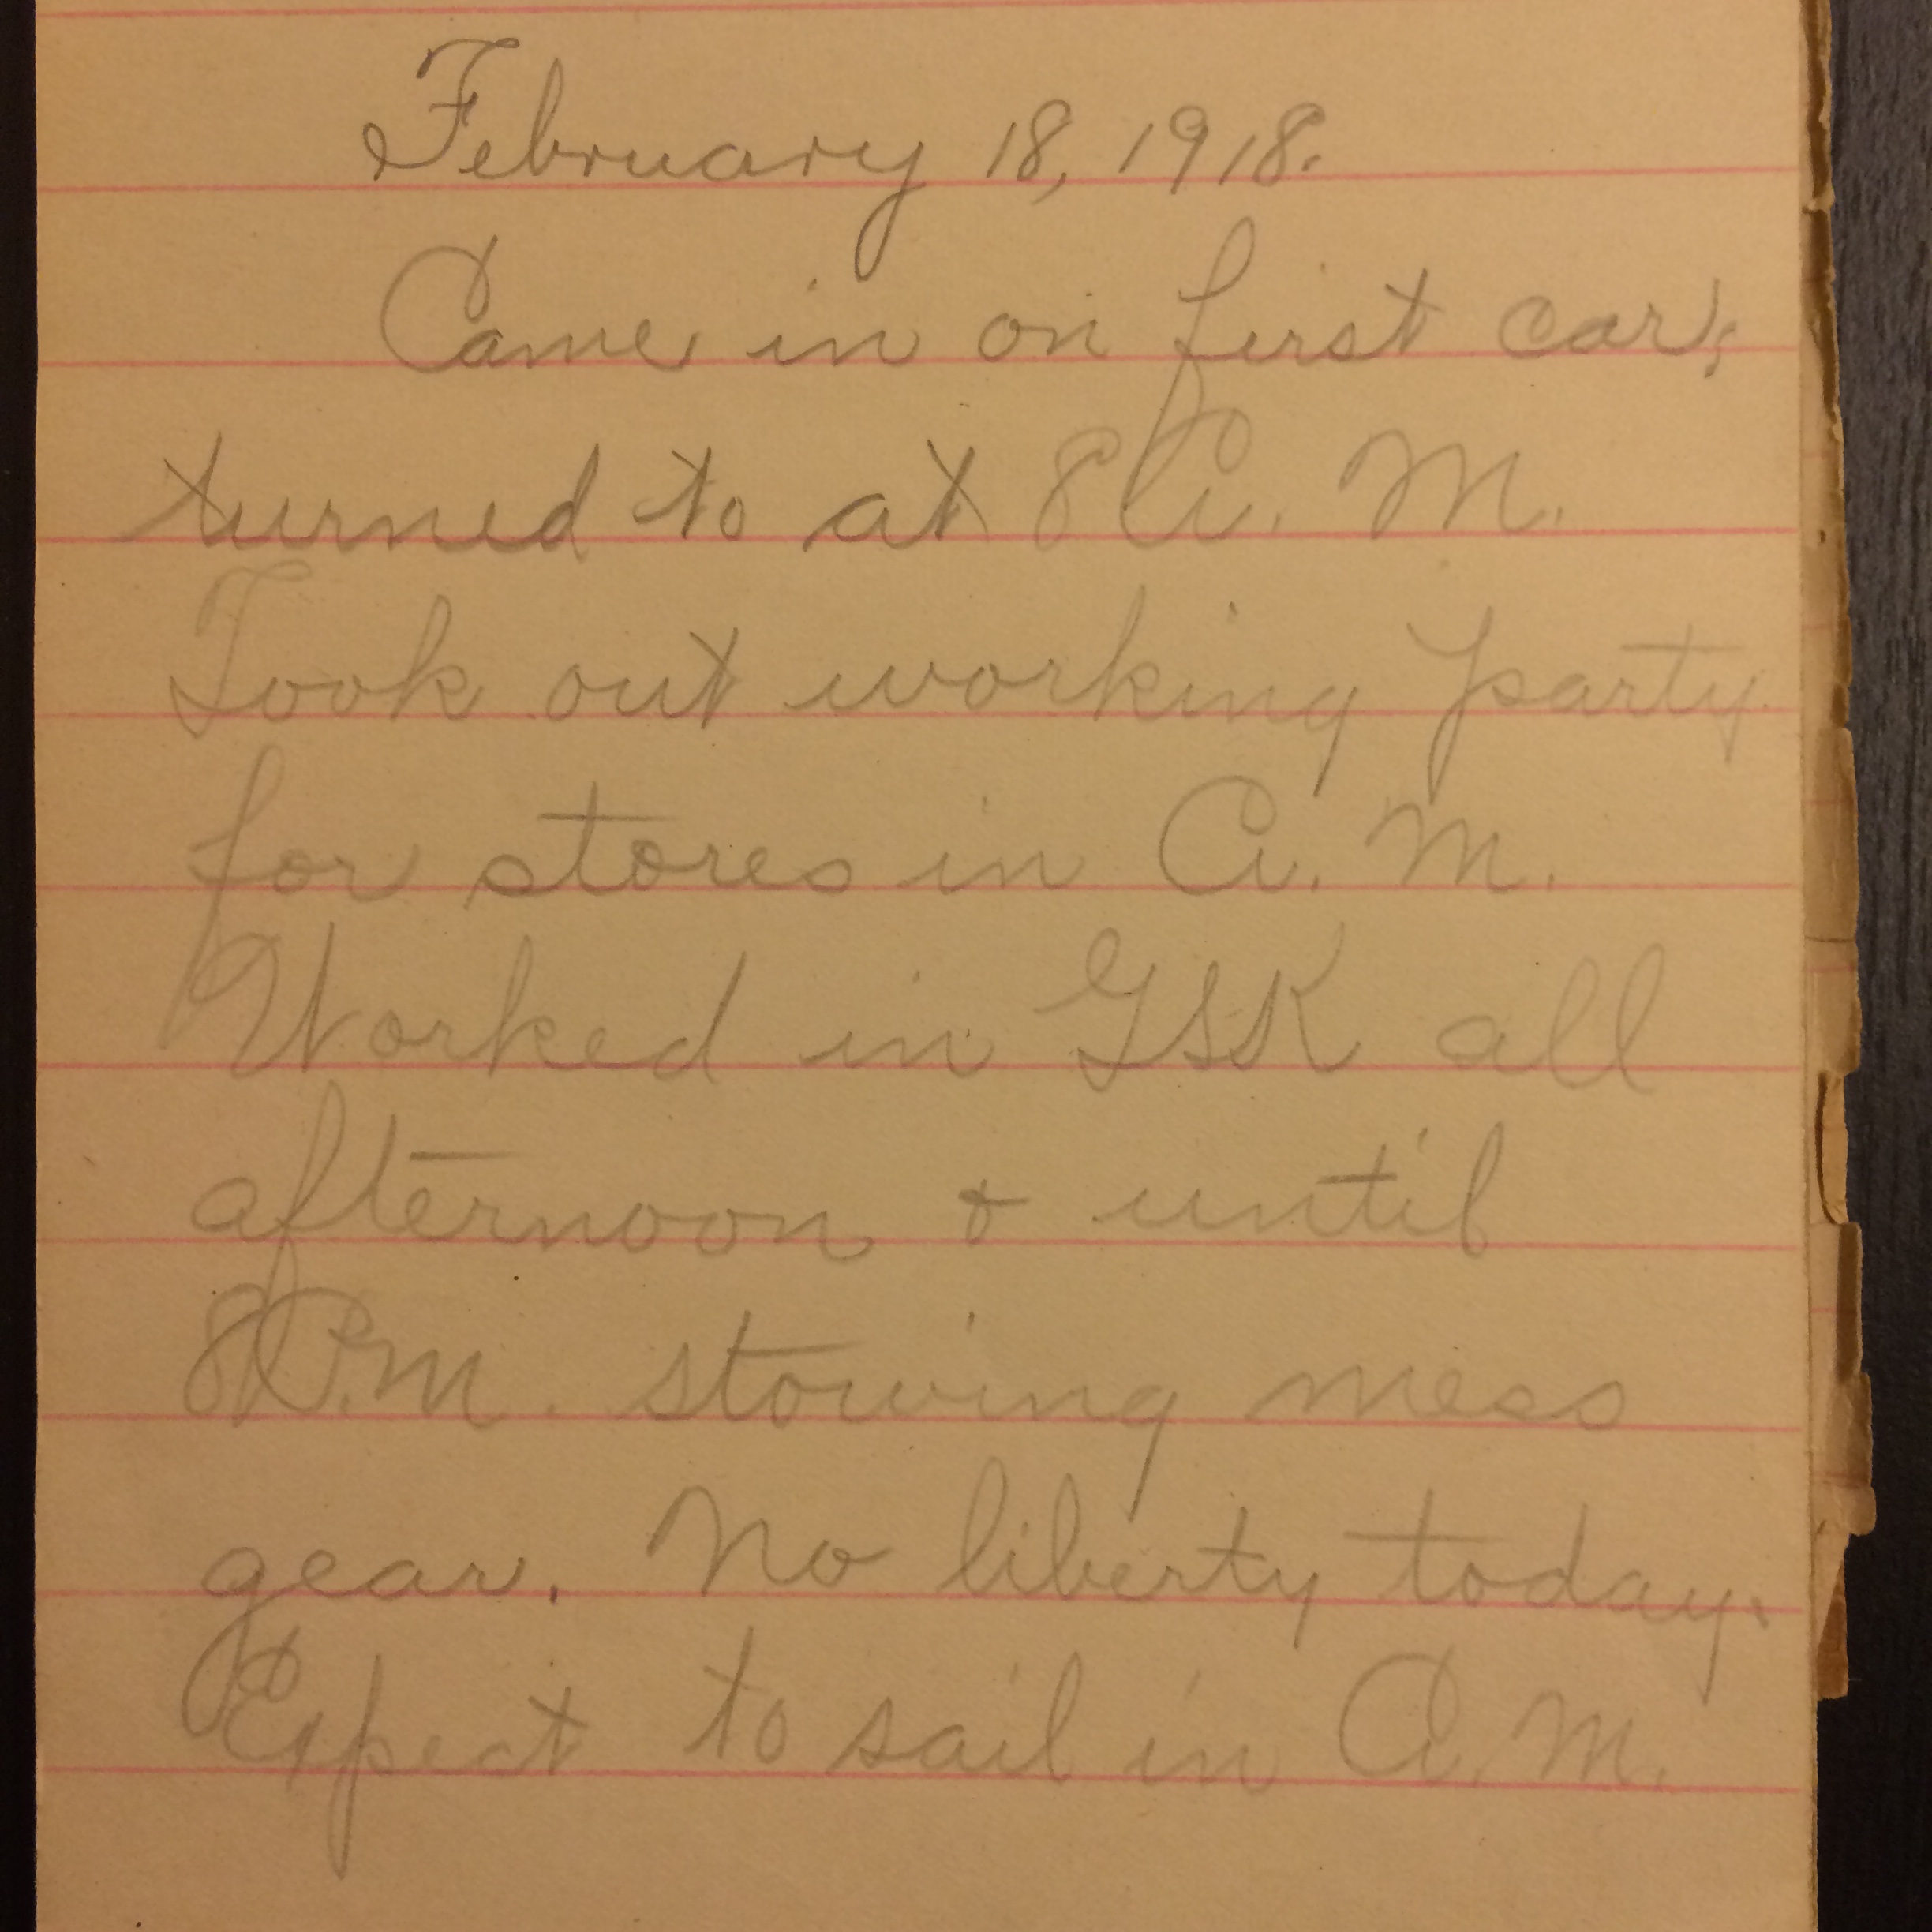 February 18, 1918.
Came in on first car;
turned to at 8 A. M.
Took out working party
for stores in A. M.
Worked in GSK all
afternoon & until
8 P.M. stowing mess
gear. No liberty today.
Expect to sail in A. M.